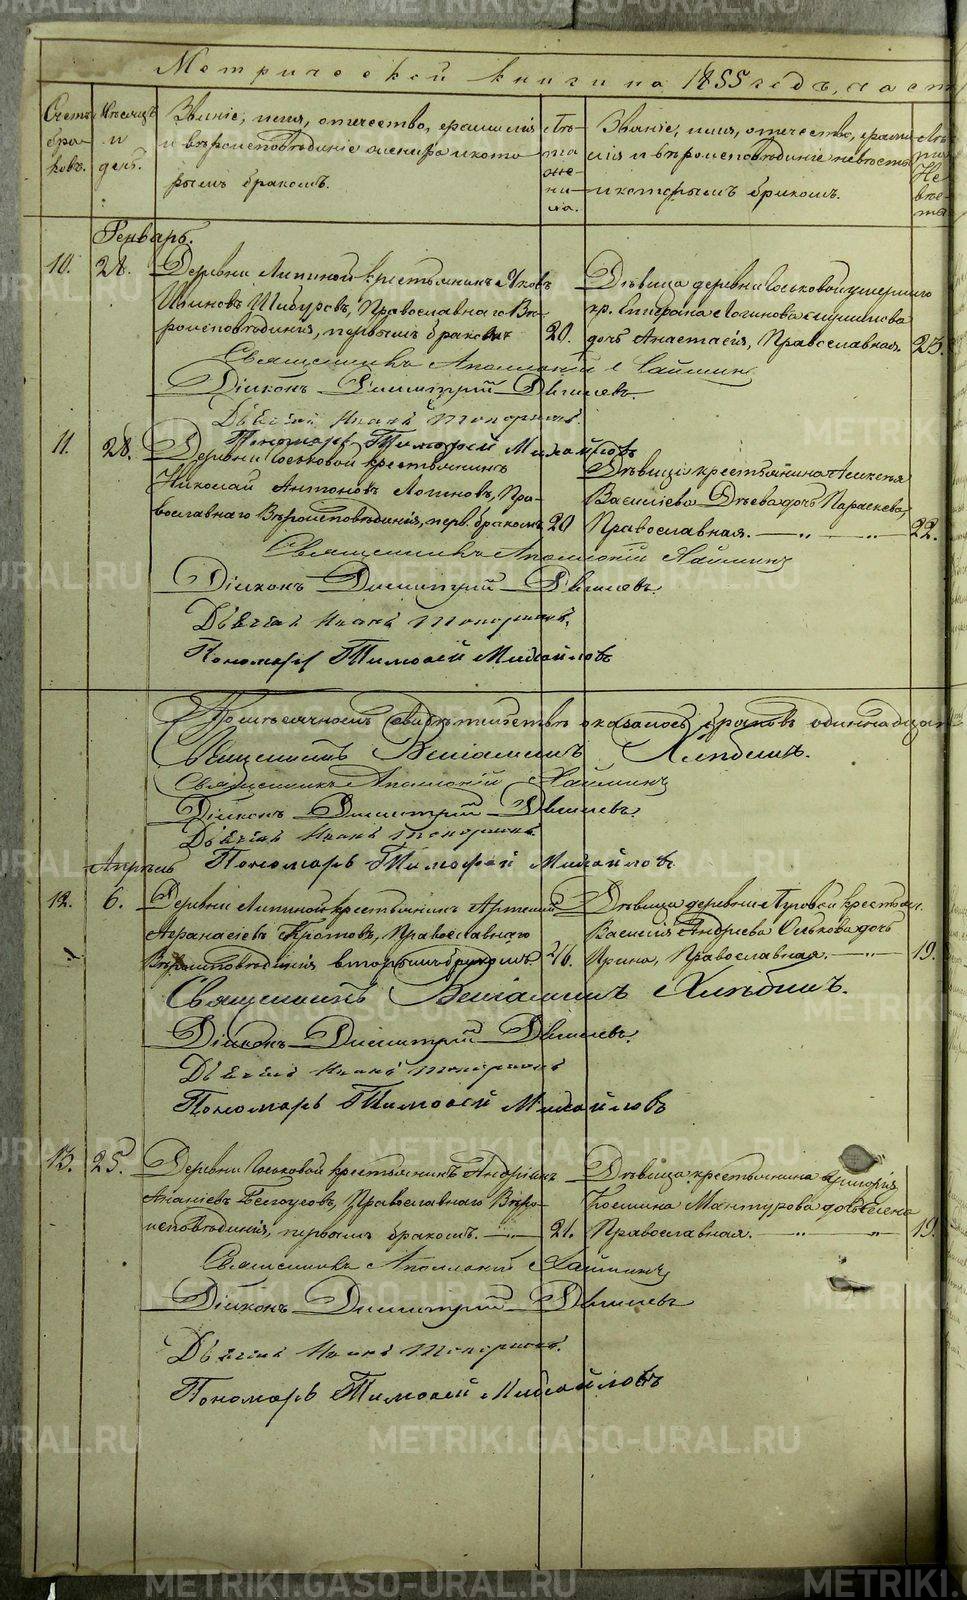 Метрической книги на 1855 годъ, част
Счетъ браковъ.
Мѣсяцъ и день.
Званіе, имя, отчество, фамилія
и вѣроисповѣданіе жениха и кото
рымъ бракомъ.
Лѣта жениха.
Званіе, имя, отчество, фами
лія и вѣроисповѣданіе невѣсты
и которымъ бракомъ.
Лѣта Невѣсты
Генварь.
10. 28. Деревни Липиной крестьянинъ Яковъ
Ивановъ Шибуровъ, Православнаго Вѣ
роисповѣданія, первымъ бракомъ 20.
Дѣвица деревни Госьковой умершаго
кр. Логинова
дочь Анастасія, Православная. 23.
Священникъ Аполлоній
Діаконъ Димитрій
Дьячекъ Иванъ Топорковъ.
Пономарь Тимоѳей Михайловъ
11. 28. Деревни Госьковой крестьянинъ
Николай Антоновъ Логиновъ, Пра-
вославнаго Вѣроисповѣданія, перв. бракомъ 20
Дѣвица, крестьянина Алексѣя
Василіева дочь Параскева,
Православная. — „ — „ — 22.
Священникъ Аполлоній
Діаконъ Димитрій
Дьячекъ Иванъ Топорковъ.
Пономарь Тимоѳей Михайловъ
По мѣсячномъ свидѣтельствѣ оказалось браковъ одиннадцать
Священникъ Веніаминъ Хлѣбинъ.
Священникъ Аполлоній
Діаконъ Димитрій
Дьячекъ Иванъ Топорковъ
Пономарь Тимофей Михайловъ
Апрѣль
12. 6. Деревни Липиной крестьянинъ Артемій
Аѳанасіевъ Кротовъ, Православнаго
Вѣроисповѣданія вторымъ бракомъ. 26.
Дѣвица деревни крестьян.
Василія Андреева дочь
Ирина, Православная. — „ — 19.
Священникъ Веніаминъ Хлѣбинъ.
Діаконъ Димитрій
Дьячекъ Иванъ Топорковъ
Пономарь Тимоѳей Михайловъ
13. 25. Деревни Госьковой крестьянинъ Андріанъ
Ананіевъ Бѣлоусовъ, Православнаго Вѣро-
исповѣданія, первымъ бракомъ. — „ — 21.
Дѣвица, крестьянина Григорія
Козмина Мантурова дочь Елена
Православная. — „ — „ — 19.
Священникъ Аполлоній
Діаконъ Димитрій
Дьячекъ Иванъ Топорковъ.
Пономарь Тимоѳей Михайловъ
METRIKI.GASO-URAL.RU